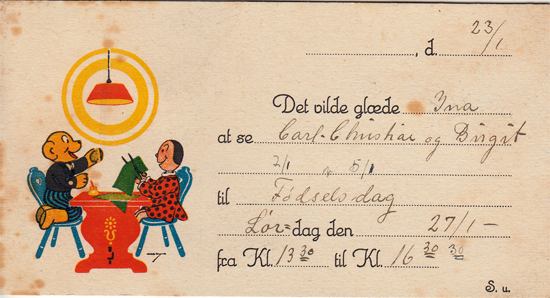 , d. 23/1
Det vilde glæde Ina
at se Carl-Christian og Birgit
2/1 5/1
til Fødselsdag
Lør=dag den 27/1-
fra Kl. 13 30 til Kl. 16 30 30
S. u.